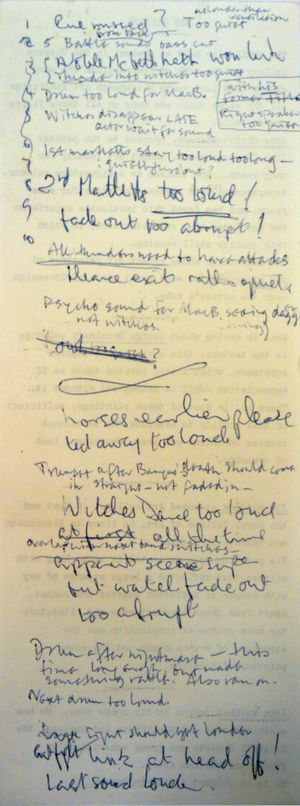 1 Cue missed? Too quiet
no louder than ventilation
2 5 Battle sound bass cut
3 Noble McBeth hath won link
thunder into witches too quiet
4 Drum too loud for MacB.
with his former title
5 Witches disappear LATE
actor wait for sound
Right speaker too quiet
6 1st martletts start too loud too long —
quickly fade out?
7
8 2nd Martletts too loud!
9 fade out too abrupt!
10 All thunders need to have attacks
Fleance exit rather quiet
Psycho sound for MacB. seeing dagg
not witches.
?
horses earlier please
led away too loud
Trumpet after Banquo's death should come
in straight — not faded in —
Witches Dance too loud
at first all the time
overlap with next band, witches —
apparent scene
but watch fade out
too abrupt
Drum after nightmare — this
time long and
something rattle. Also ran on.
Next drum too loud.
fight should get louder
link at head off!
Last sound louder.